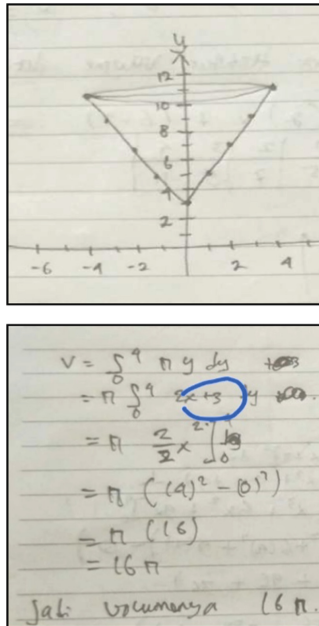 y
12
10
8
6
4
2
-6 -4 -2 2 4
V = ∫₀⁴ π y dy
= π ∫₀⁴ 2x+3 dy
= π 2/2 x²
= π ((4)² - (0)²)
= π (16)
= 16 π
Jadi volumenya 16 π.